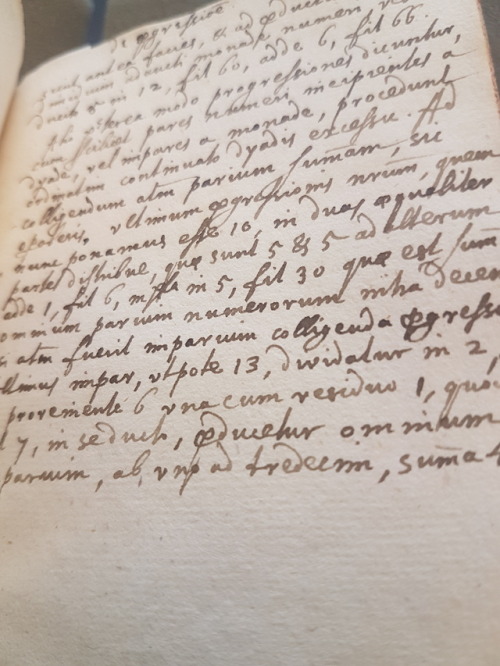 di progressione
sicut antea facies, & ad
modum ducti monade numeri
ducto 5 in 12, fit 60, adde 6, fit 66.
Alio viterea modo progressiones dicuntur,
cum scilicet pares numeri incipientes a
dyade, vel impares a monade, procedunt
ordinatim continuato dyadis excessu. Ad
colligendum atm parium sumam, sic
epoteris. Vltimum progressionis nrum, quem
nunc ponamus esse 10, in duas æquabiliter
partes distribue, quæ sunt 5 & 5 ad alterum
adde 1, fit 6, in 5, fit 30 quæ est sum
omnium parium numerorum infra decem
atm fuerit imparium colligenda progress
ltimus impar, vtpote 13, dividatur in 2,
proveniente 6 vna cum residuo 1, quo
7, in se ducto, producetur omnium
parium, ab vno ad tredecim, suma 4